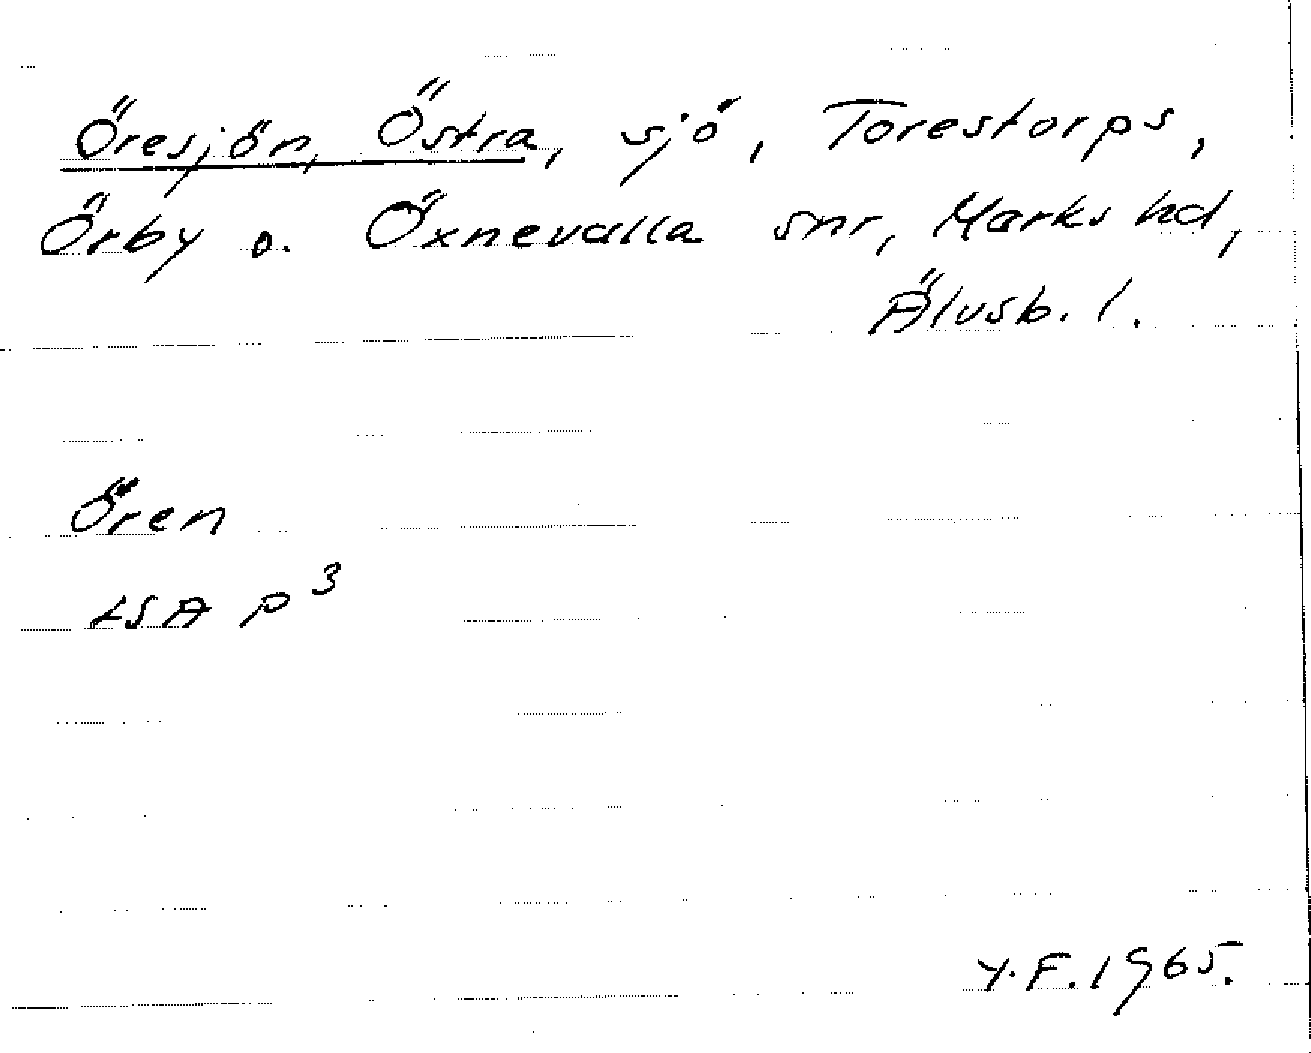 Öresjön, Östra, sjö, Torestorps,
Örby o. Öxnevalla snr, Marks hd,
Älvsb. l.
Ören
LSA P³
Y.F. 1965.